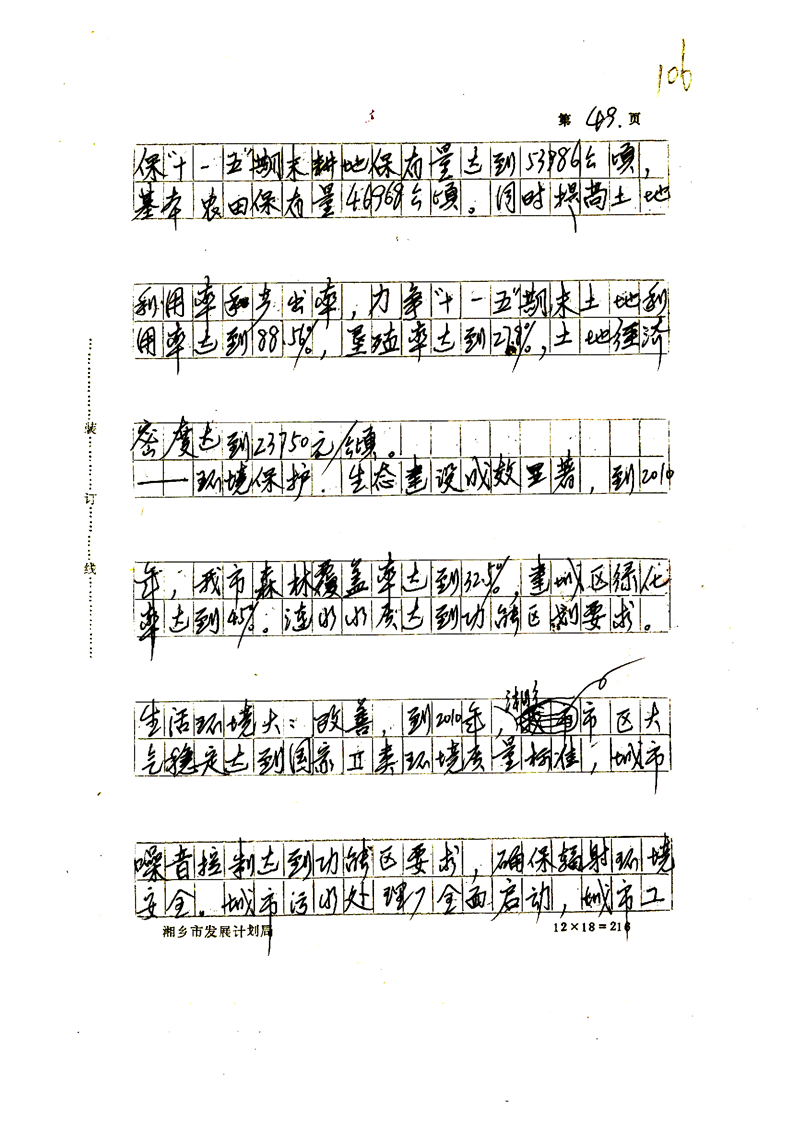 106
第 49. 页
保"十一五"期末耕地保有量达到53986公顷,
基本农田保有量46968公顷。同时提高土地
利用率和产出率,力争"十一五"期末土地利
用率达到88.56%,垦殖率达到27.8%,土地经济
密度达到23750元/公顷。
——环境保护.生态建设成效显著,到2010
年,我市森林覆盖率达到32.5%,建城区绿化
率达到45%。涟水水质达到功能区划要求。
生活环境大大改善,到2010年,市区大
气稳定达到国家Ⅱ类环境质量标准,城市
噪音控制达到功能区要求,确保辐射环境
安全。城市污水处理厂全面启动,城市工
湘乡市发展计划局 12×18=216
装订线